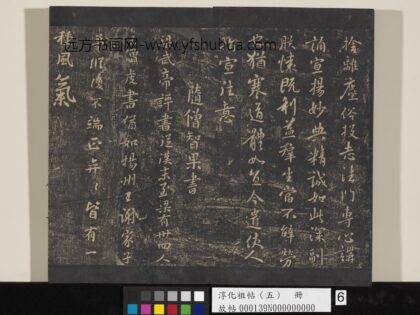 远方书画网-www.yfshuhua.com
捨離塵俗投志法門專心講
誦宣揚妙典精誠如此深副
朕懷既利益群生當不辭勞
也猶寒道體如宜今遣使人
指宣往意
隋僧智果書
梁武帝評書從漢末至梁有卅四人
子
並有一
種風氣
淳化祖帖(五) 冊
故帖 000139N000000000
6